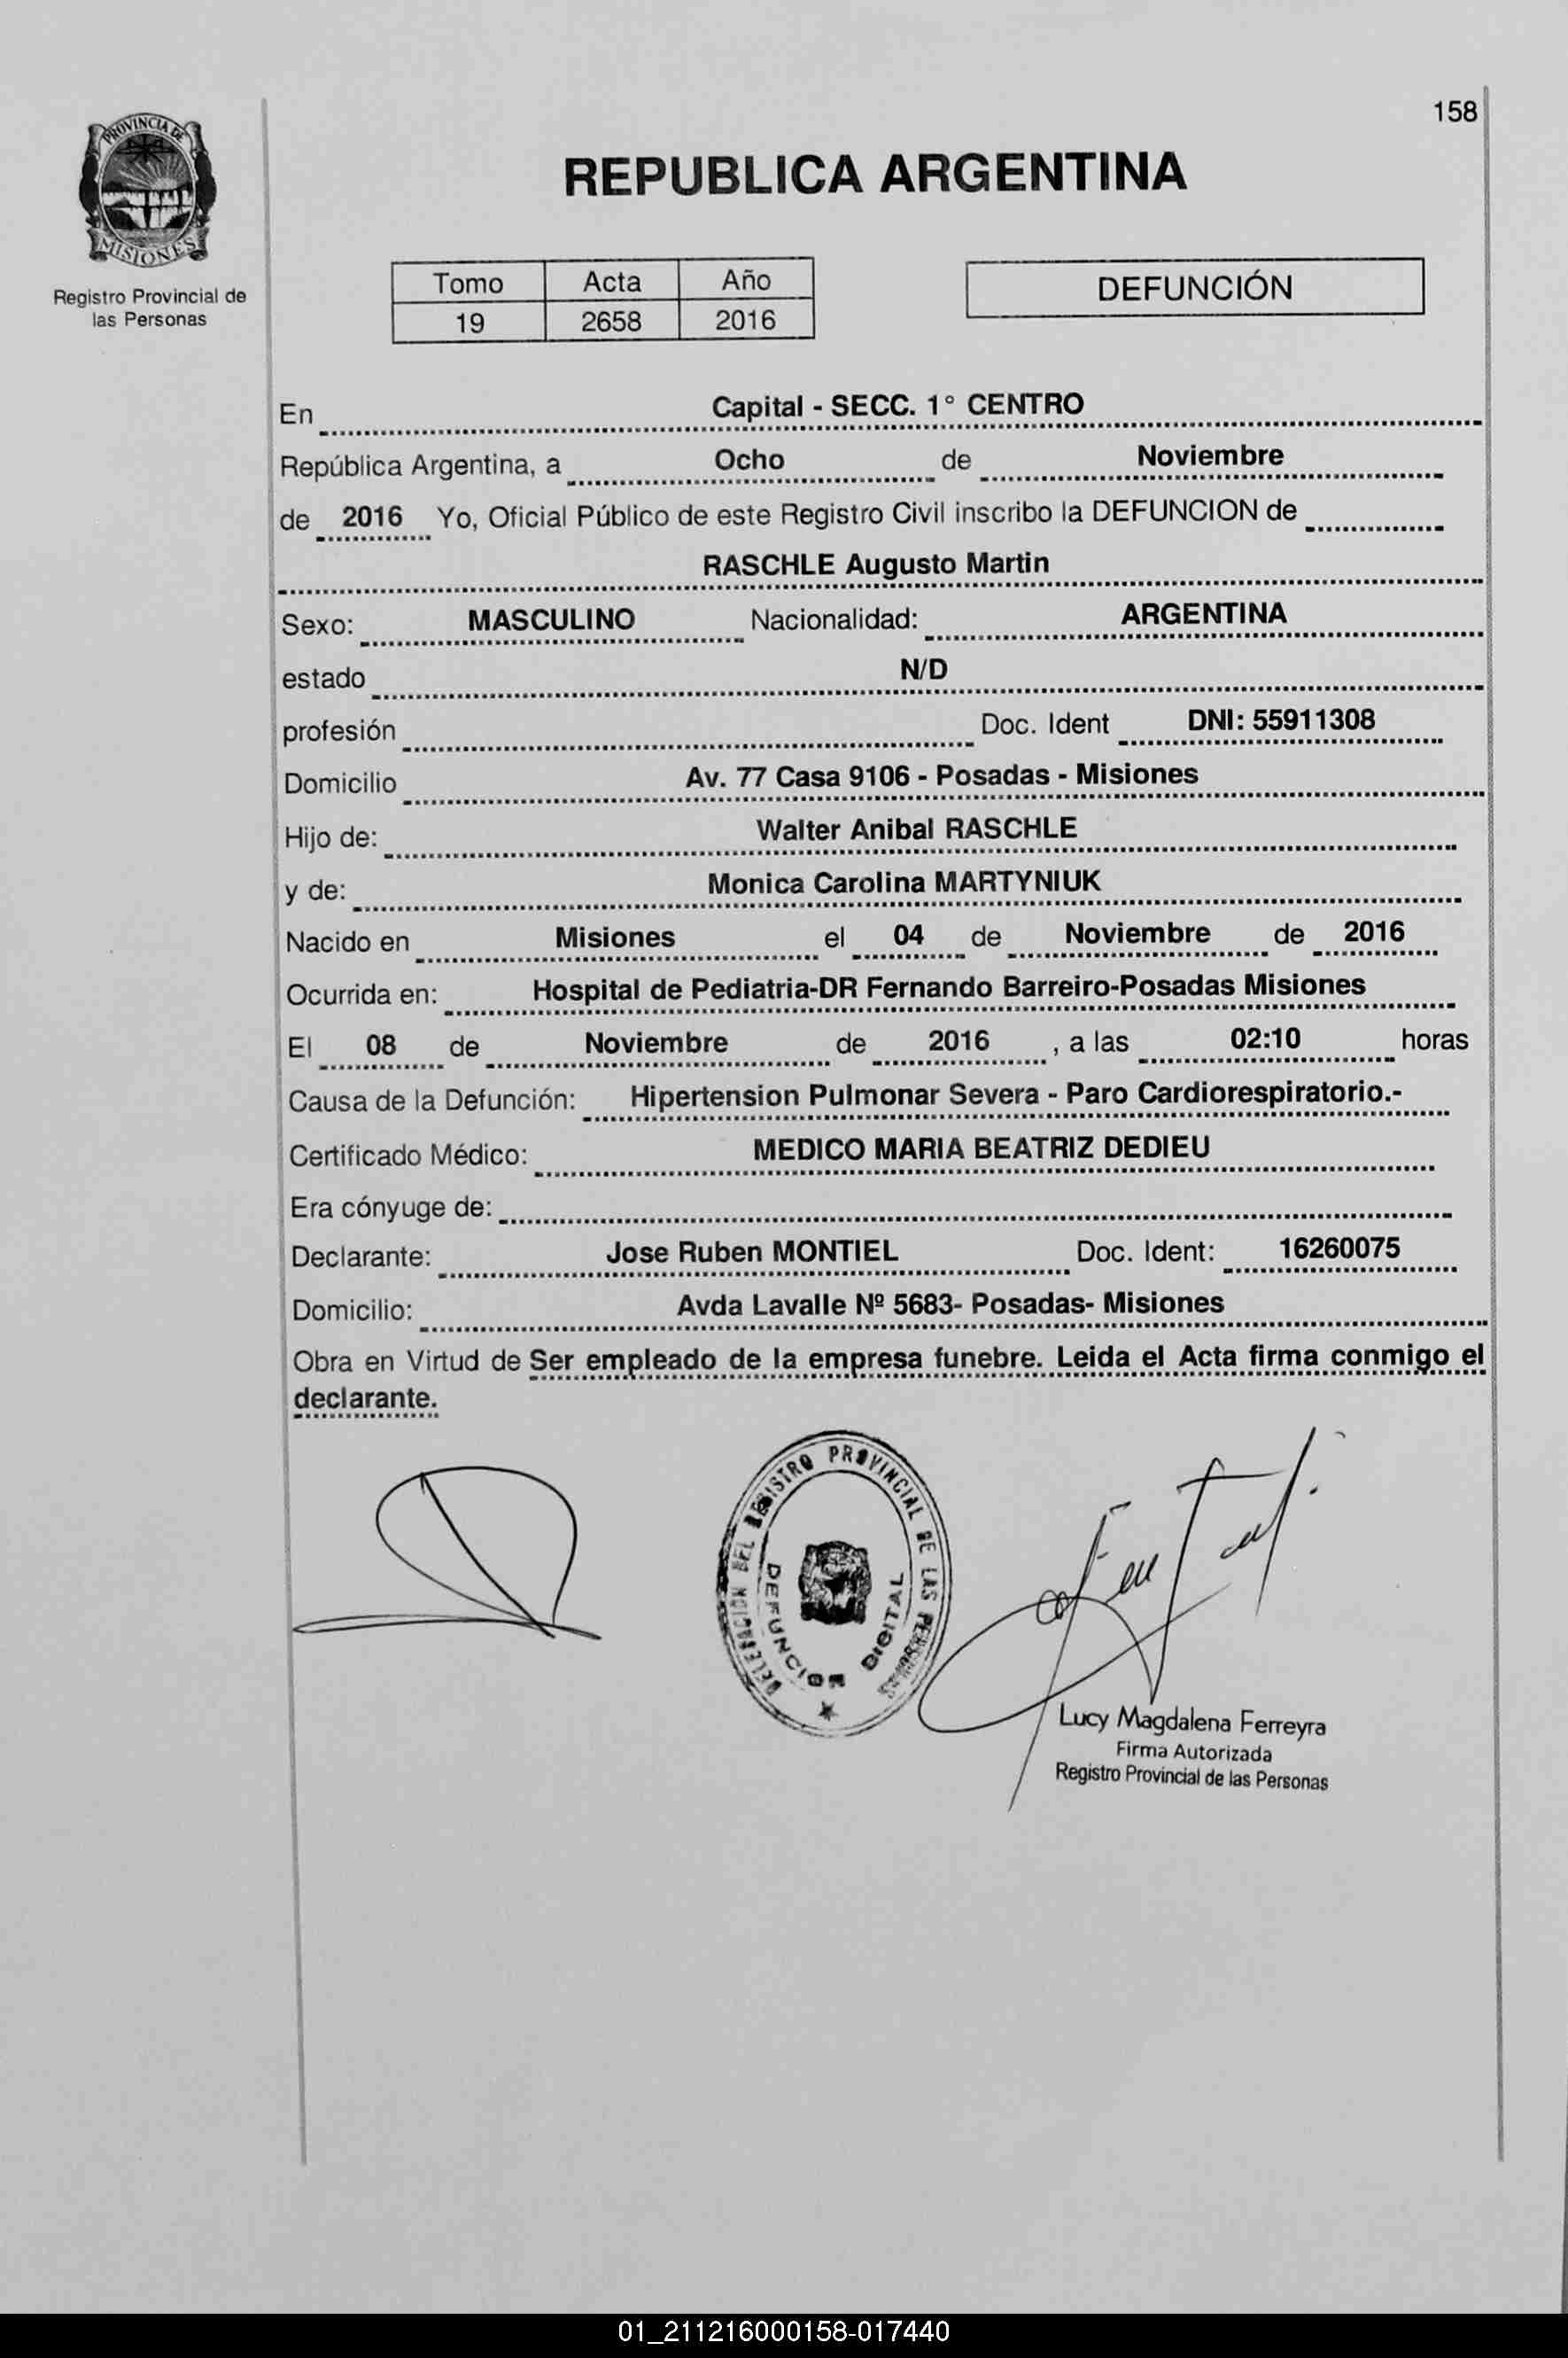 158
PROVINCIA DE
MISIONES
Registro Provincial de
las Personas
REPUBLICA ARGENTINA
Tomo Acta Año
19 2658 2016
DEFUNCIÓN
En Capital - SECC. 1° CENTRO
República Argentina, a Ocho de Noviembre
de 2016 Yo, Oficial Público de este Registro Civil inscribo la DEFUNCION de
RASCHLE Augusto Martin
Sexo: MASCULINO Nacionalidad: ARGENTINA
estado N/D
profesión Doc. Ident DNI: 55911308
Domicilio Av. 77 Casa 9106 - Posadas - Misiones
Hijo de: Walter Anibal RASCHLE
y de: Monica Carolina MARTYNIUK
Nacido en Misiones el 04 de Noviembre de 2016
Ocurrida en: Hospital de Pediatria-DR Fernando Barreiro-Posadas Misiones
El 08 de Noviembre de 2016 , a las 02:10 horas
Causa de la Defunción: Hipertension Pulmonar Severa - Paro Cardiorespiratorio.-
Certificado Médico: MEDICO MARIA BEATRIZ DEDIEU
Era cónyuge de:
Declarante: Jose Ruben MONTIEL Doc. Ident: 16260075
Domicilio: Avda Lavalle Nº 5683- Posadas- Misiones
Obra en Virtud de Ser empleado de la empresa funebre. Leida el Acta firma conmigo el
declarante.
DELEGACION DEL REGISTRO PROVINCIAL DE LAS PERSONAS
DEFUNCION DIGITAL
Lucy Magdalena Ferreyra
Firma Autorizada
Registro Provincial de las Personas
01_211216000158-017440